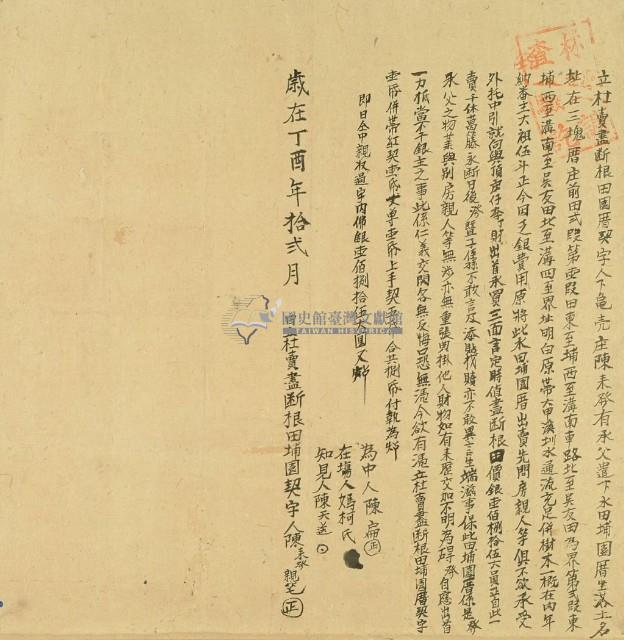 立杜賣盡斷根田園厝契字人下龜壳庄陳來發有承父遺下水田埔園厝坐落土名
址在三塊厝庄前田弍段第壹段田東至埔西至溝南至車路北至吳友田為界第弍段東
至埔西至溝南至吳友田北至溝四至界址明白原帶大甲溪圳水通流充足併樹木一概在內年
納番主大租伍斗正今因乏銀費用原將此水田埔園厝出賣先問房親人等俱不欲承受
外托中引就向與 出首承買三面言定時值盡斷根田價銀壹佰捌拾伍大員正自此一
賣千休葛藤永斷日後發暨子孫不敢言及添貼找贖亦不敢異言生端滋事保此田埔園厝係是發
承父之物業與別房親人等無涉亦無重張典掛他人財物如有來歷交加不明為碍發自應出首
一力抵當不干銀主之事此係仁義交關各無反悔口恐無憑今欲有憑立杜賣盡斷根田埔園厝契字
壹帋併帶紅契壹帋丈單壹帋上手契 合共捌帋付執為炤
即日仝中親收過字內佛銀壹佰捌拾伍大員足炤
為中人陳扁
在塲人媽柯氏
知見人陳天送
歲在丁酉年拾弍月 日立杜賣盡斷根田埔園契字人陳來發 親筆
國史館臺灣文獻館
TAIWAN HISTORICA